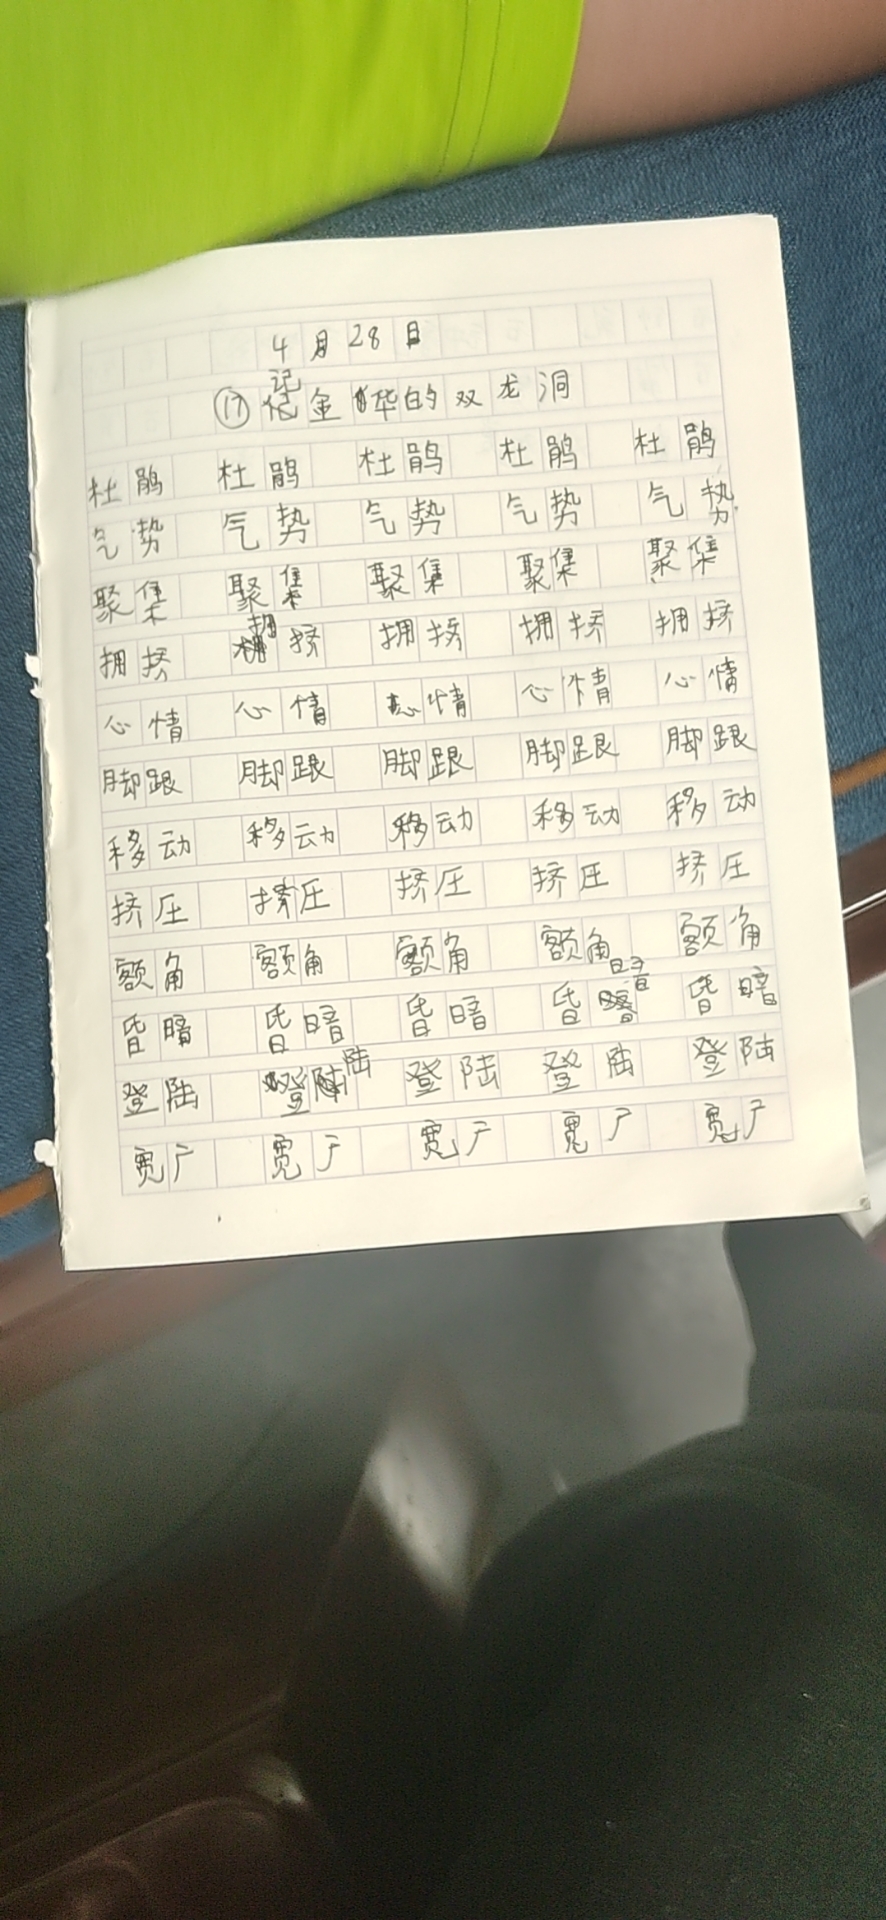 4月28日
⑰记金华的双龙洞
杜鹃 杜鹃 杜鹃 杜鹃 杜鹃
气势 气势 气势 气势 气势
聚集 聚集 聚集 聚集 聚集
拥挤 拥挤 拥挤 拥挤 拥挤
心情 心情 心情 心情 心情
脚跟 脚跟 脚跟 脚跟 脚跟
移动 移动 移动 移动 移动
挤压 挤压 挤压 挤压 挤压
额角 额角 额角 额角 额角
昏暗 昏暗 昏暗 昏暗 昏暗
登陆 登陆 登陆 登陆 登陆
宽广 宽广 宽广 宽广 宽广